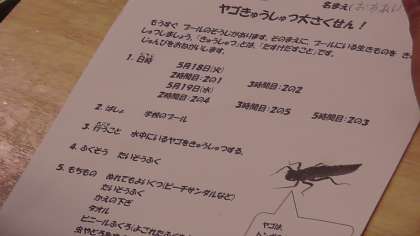 名まえ(
ヤゴきゅうしゅつ大さくせん!
もうすぐ プールのそうじがあります。そのまえに、プールにいる生きものを き
しゅつしましょう。「きゅうしゅつ」とは、「たすけだすこと」です。
じゅんびをおねがいします。
1. 日時 5月18日(火)
2時間目:2の1 3時間目:2の2
5月19日(水)
2時間目:2の4 3時間目:2の5 5時間目:2の3
2. ばしょ 学校のプール
3. 行うこと 水中にいるヤゴをきゅうしゅつする。
4. ふくそう たいそうふく
5. もちもの ぬれてもよいくつ(ビーチサンダルなど)
たいそうふく
かえの下ぎ
タオル
ビニールふくろ(よごれたふく
ヤゴは